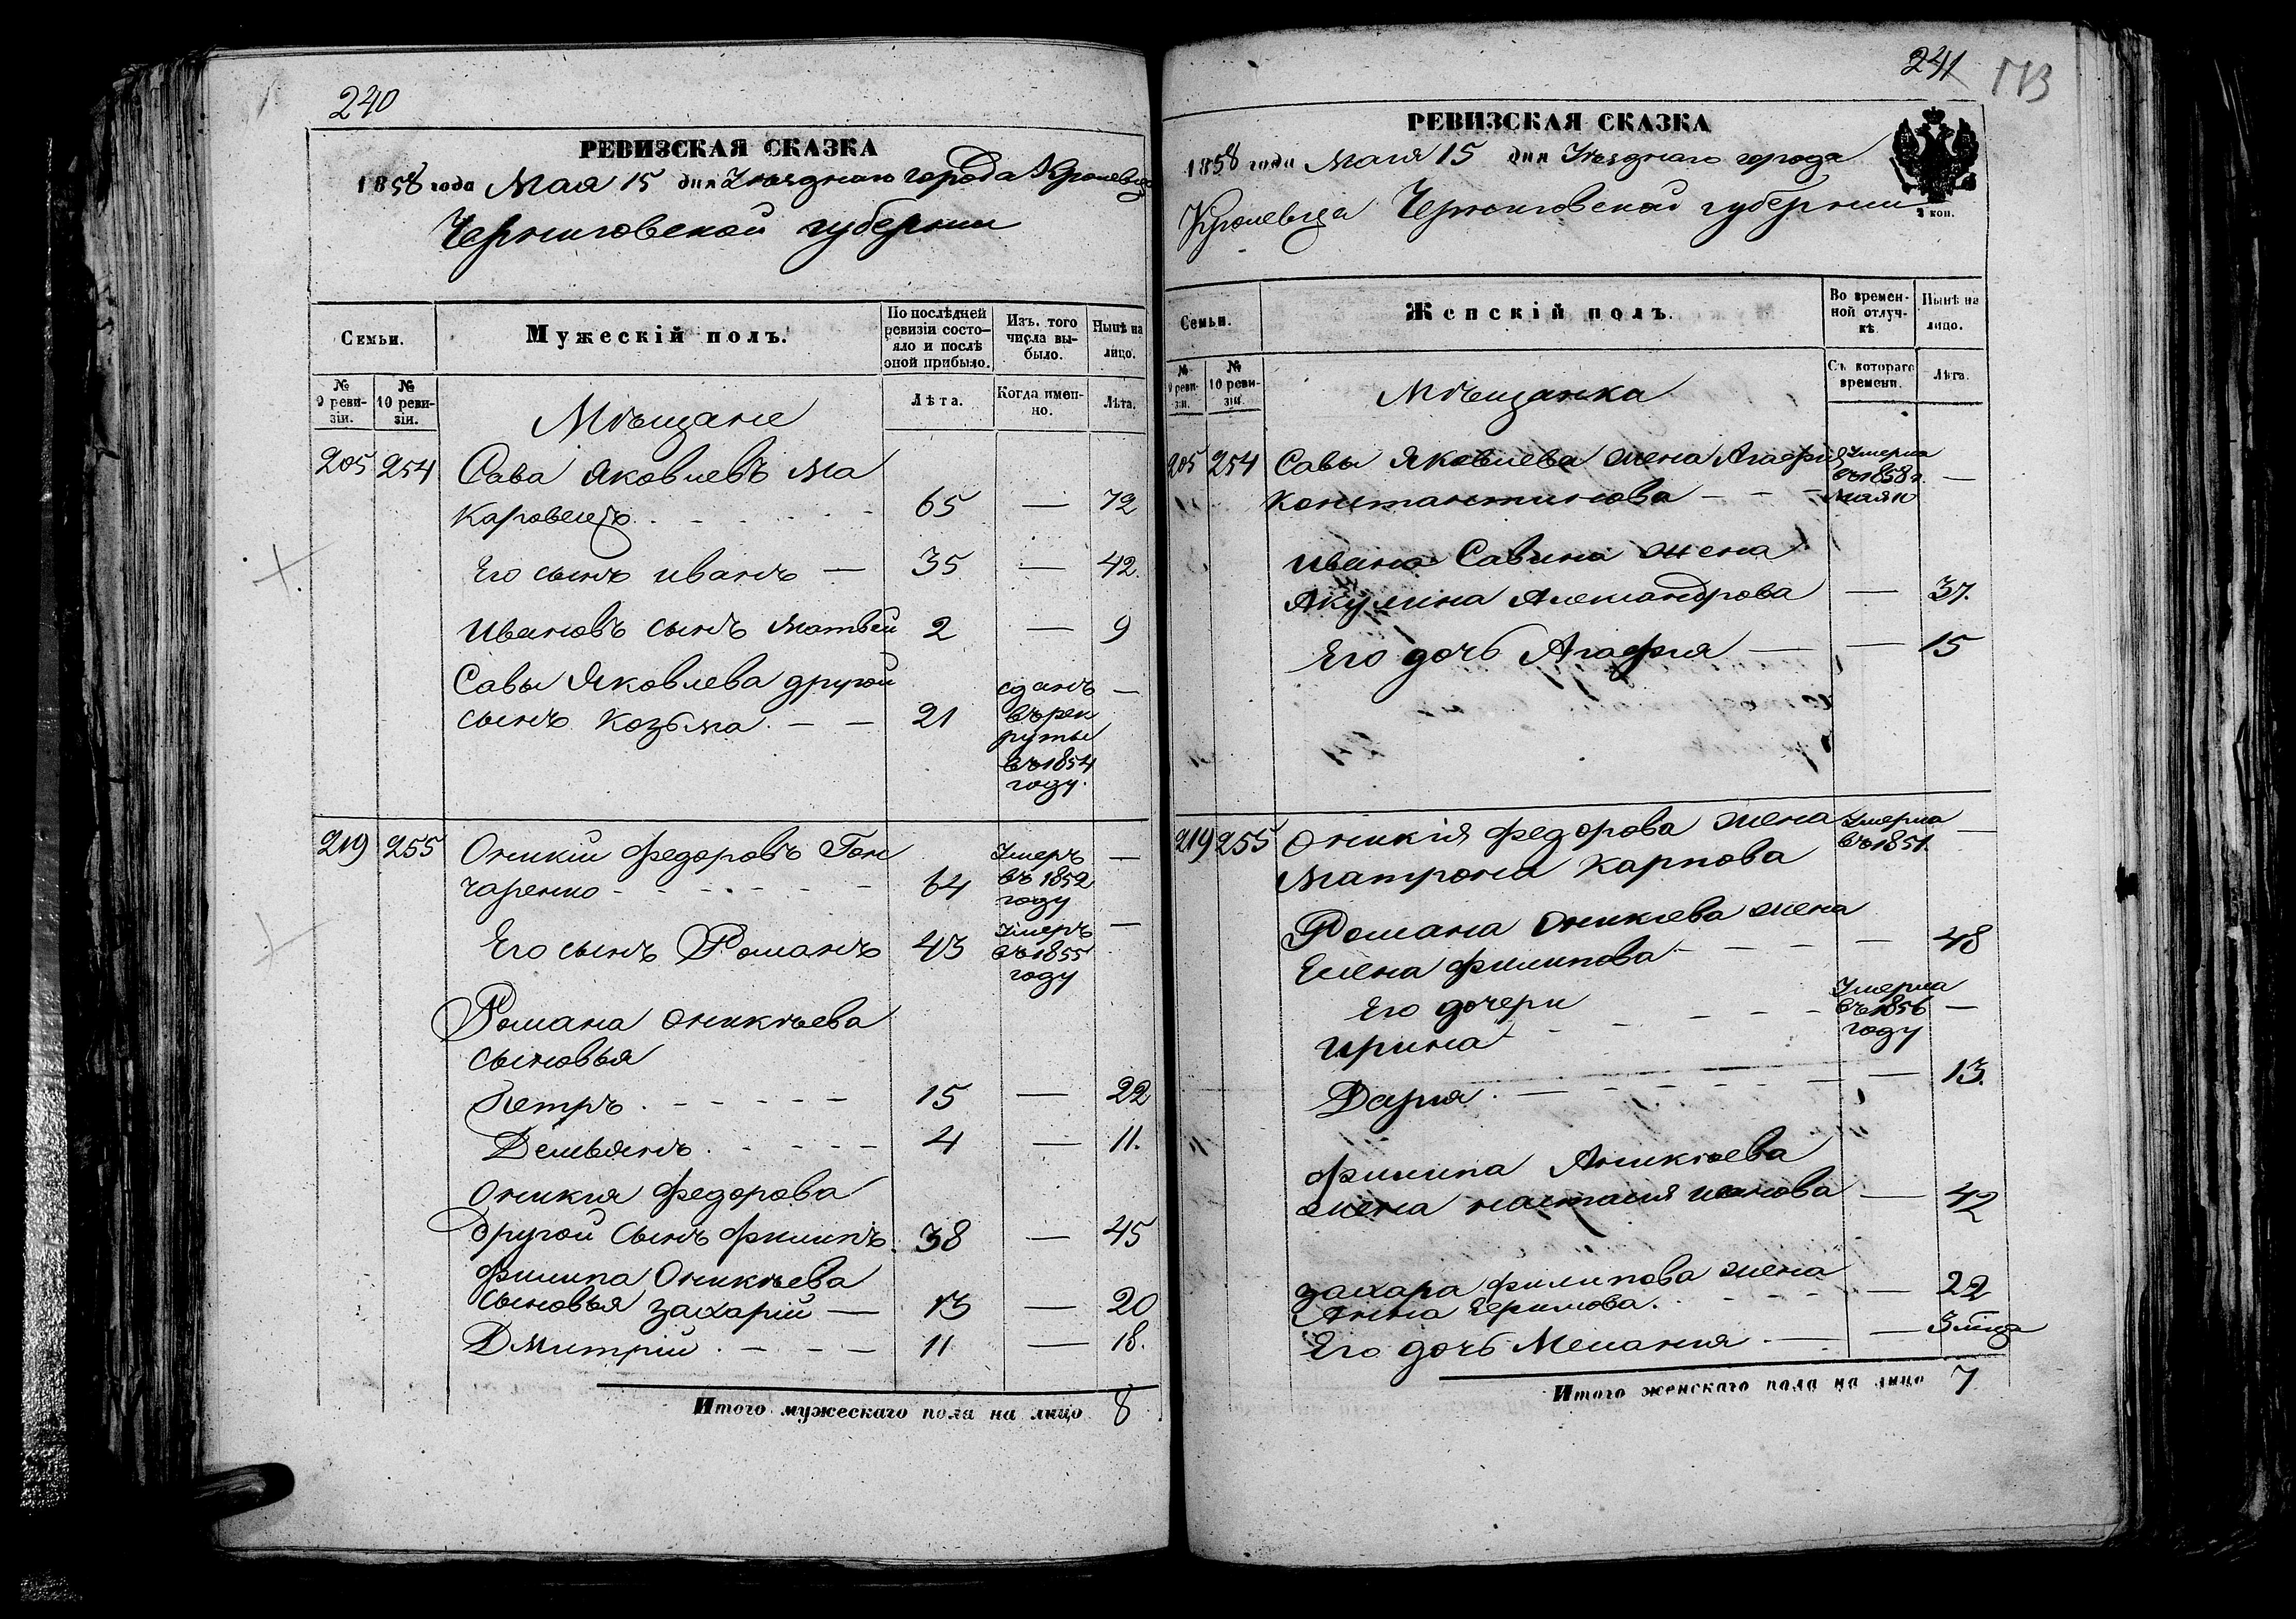 240
РЕВИЗСКАЯ СКАЗКА
1858 года Мая 15 дня Уезднаго города Кролевца
Черниговской губернии
Семьи.
Мужескій полъ.
По послѣдней ревизіи состо-
яло и послѣ оной прибыло.
Изъ того числа вы-
было.
Нынѣ на лицо.
№ 9 реви-
зіи.
№ 10 реви-
зіи.
Лѣта.
Когда имен-
но.
Лѣта.
Мѣщане
205 254 Сава Яковлевъ Ма
каровецъ 65 — 72
Его сынъ Иванъ — 35 — 42
Ивановъ сынъ Матвей 2 — 9
Савы Яковлева другой
сынъ Козьма 21 сданъ —
въ рек
руты
въ 1854
году.
219 255 Оникій Федоровъ Гон
чаренко 64 Умеръ —
въ 1852
году
Его сынъ Романъ 43 Умеръ —
въ 1855
году
Романа Оникѣева
сыновья
Петръ 15 — 22
Демьянъ 4 — 11.
Оникия Федорова
другой сынъ Филипъ 38 — 45
Филипа Оникѣева
сыновья Захарій — 13 — 20
Дмитрій 11 — 18.
Итого мужескаго пола на лицо 8
241
173
РЕВИЗСКАЯ СКАЗКА
1858 года Мая 15 дня Уезднаго города
Кролевца Черниговской губернии
2 коп.
Семьи.
Женскій полъ.
Во времен-
ной отлуч-
кѣ.
Нынѣ на лицо.
№ 9 реви-
зіи.
№ 10 реви-
зіи.
Съ котораго времени.
Лѣта.
Мѣщанка
205 254 Савы Яковлева жена Агафия Умерла
Константинова въ 1858 г. —
Мая 10
Ивана Савина жена
Акулина Александрова — 37.
Его дочь Агафия — — 15
219 255 Оникія Федорова жена Умерла —
Матрона Карпова въ 1851.
Романа Оникиева жена
Елена Филипова — 48
Его дочери
Ирина Умерла —
въ 1856
году
Дария — 13.
Филипа Аникѣева
жена Настасия Иванова — 42
Захара Филипова жена
Анна Ефимова — 22
Его дочь Мелания — — 3 мца
Итого женскаго пола на лицо 7